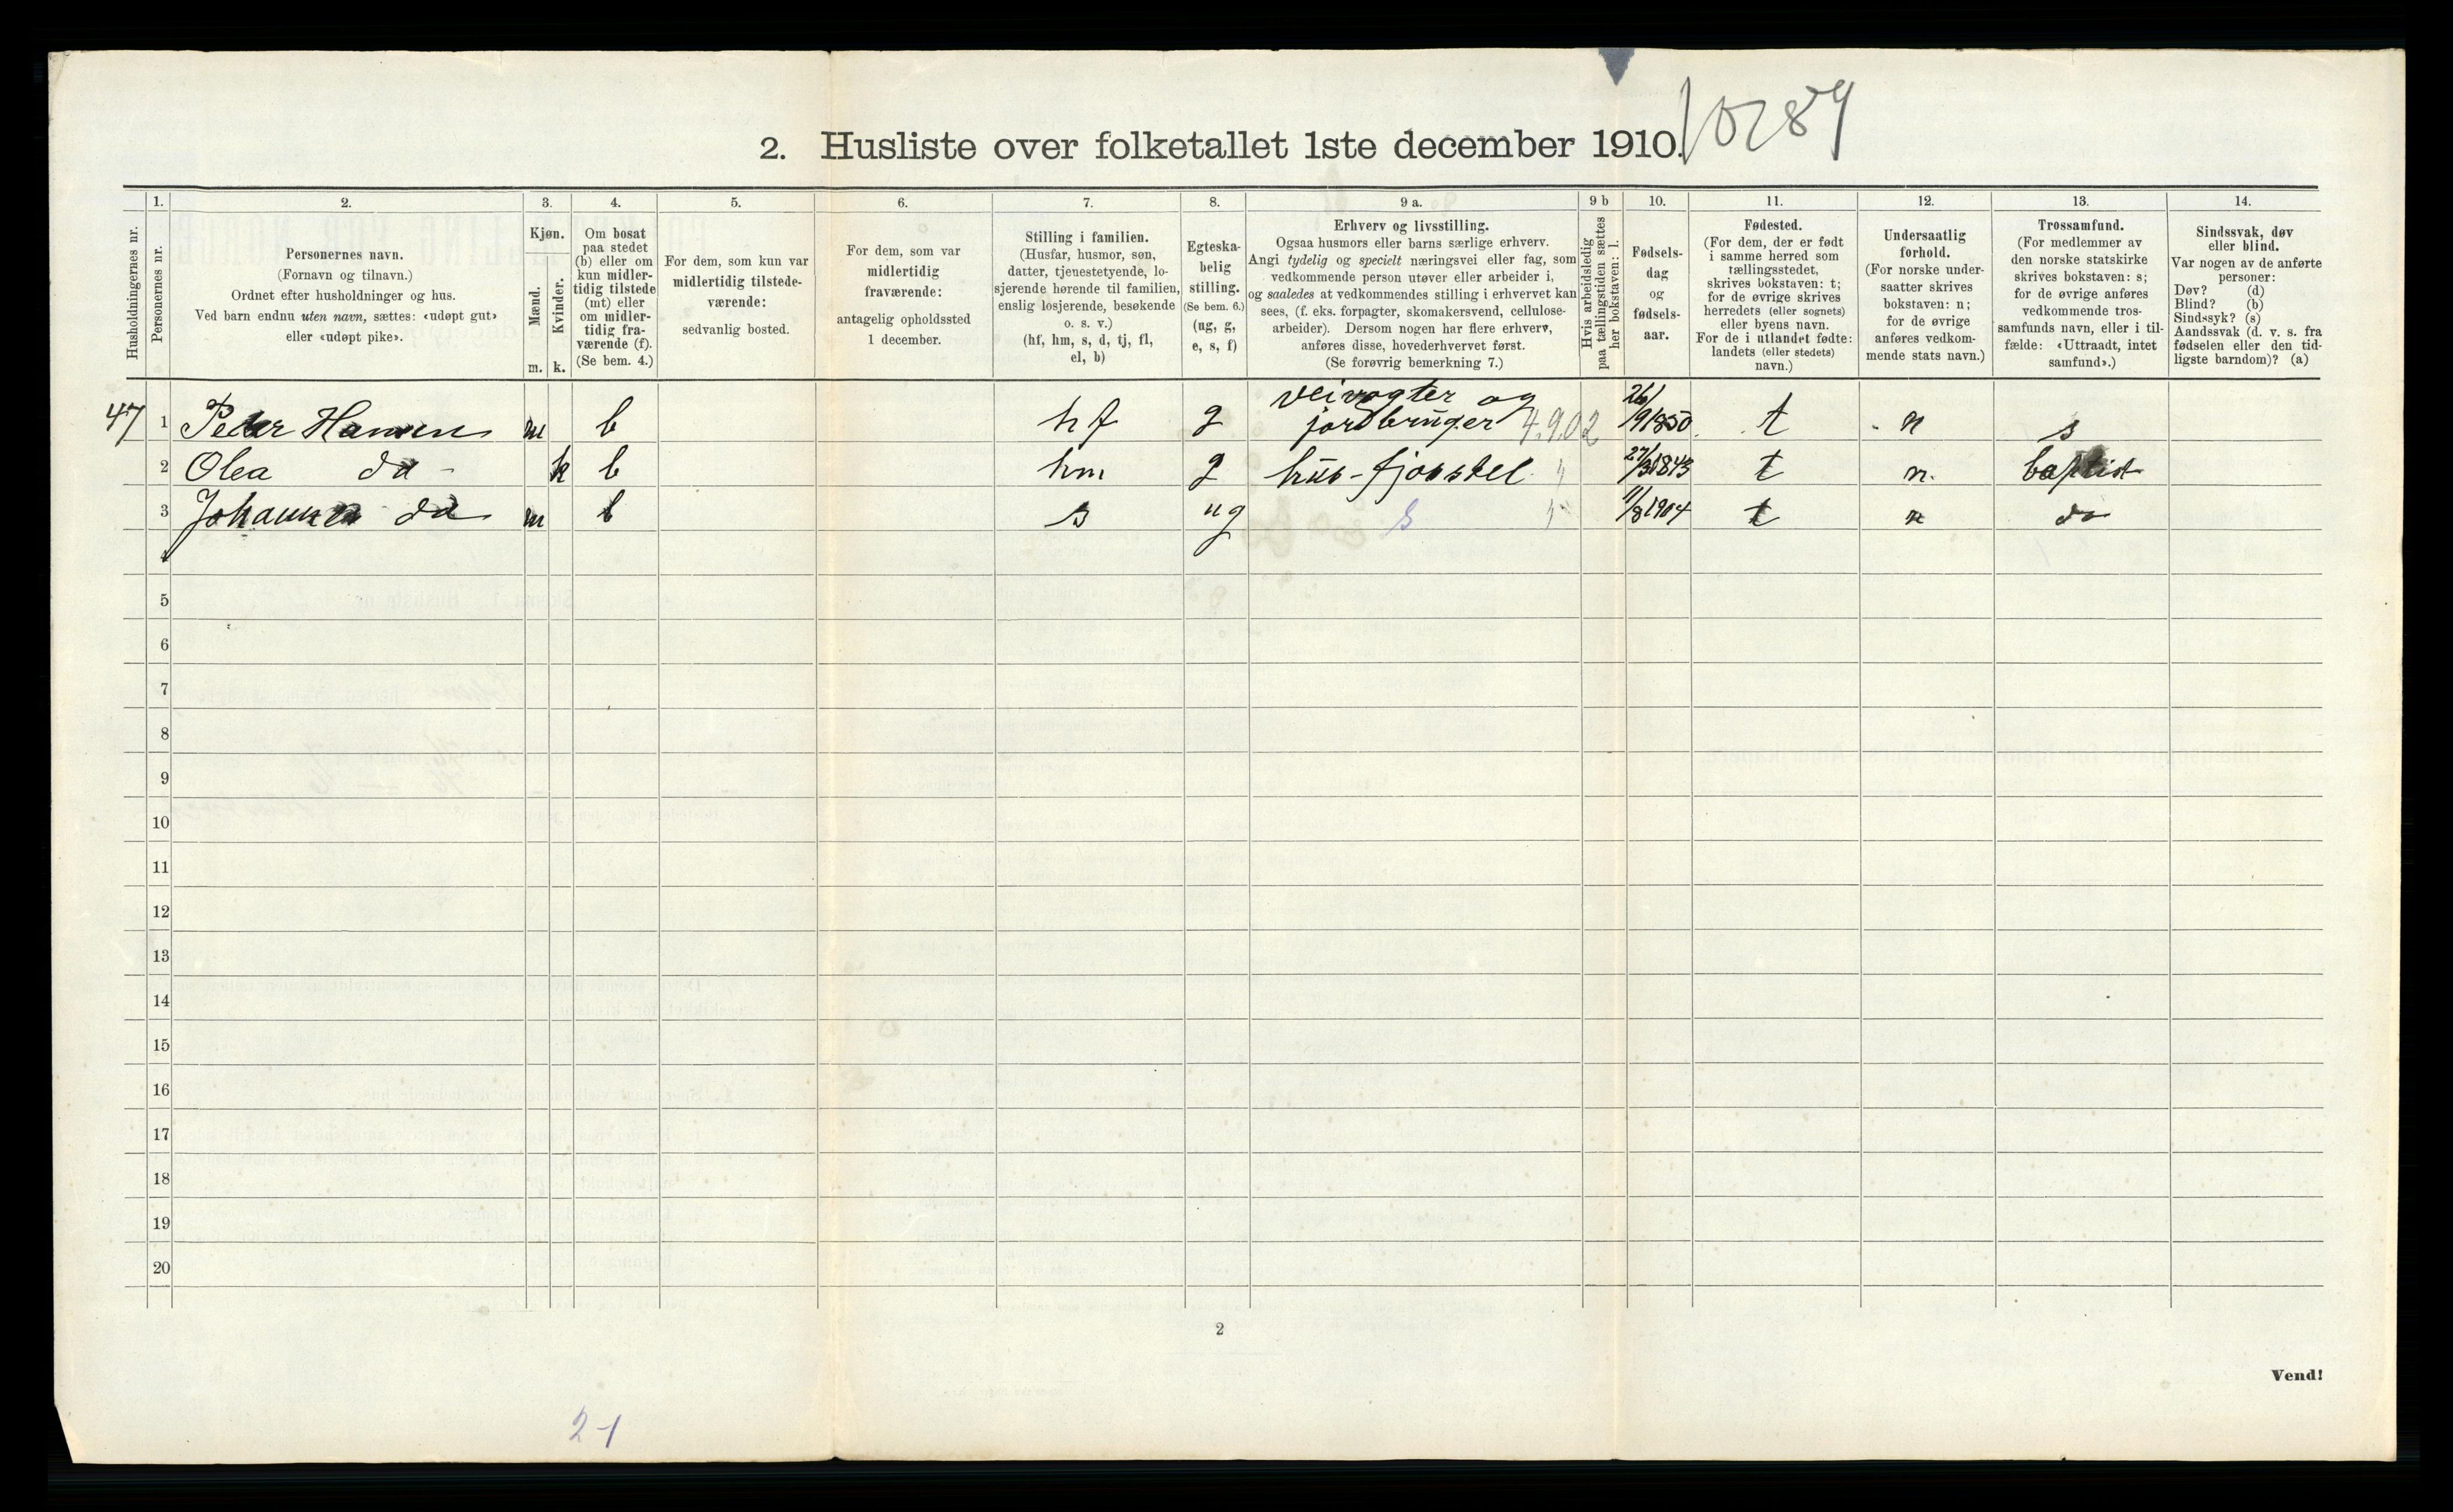 10289
2. Husliste over folketallet 1ste december 1910.
Husholdningernes nr.
1.
Personernes nr.
2.
Personernes navn.
(Fornavn og tilnavn.)
Ordnet efter husholdninger og hus.
Ved barn endnu uten navn, sættes: «udøpt gut»
eller «udøpt pike».
3.
Kjøn.
Mænd.
Kvinder.
m. k.
4.
Om bosat
paa stedet
(b) eller om
kun midler-
tidig tilstede
(mt) eller
om midler-
tidig fra-
værende (f).
(Se bem. 4.)
5.
For dem, som kun var
midlertidig tilstede-
værende:
sedvanlig bosted.
6.
For dem, som var
midlertidig
fraværende:
antagelig opholdssted
1 december.
7.
Stilling i familien.
(Husfar, husmor, søn,
datter, tjenestetyende, lo-
sjerende hørende til familien,
enslig losjerende, besøkende
o. s. v.)
(hf, hm, s, d, tj, fl,
el, b)
8.
Egteska-
belig
stilling.
(Se bem. 6.)
(ug, g,
e, s, f)
9 a.
Erhverv og livsstilling.
Ogsaa husmors eller barns særlige erhverv.
Angi tydelig og specielt næringsvei eller fag, som
vedkommende person utøver eller arbeider i,
og saaledes at vedkommendes stilling i erhvervet kan
sees, (f. eks. forpagter, skomakersvend, cellulose-
arbeider). Dersom nogen har flere erhverv,
anføres disse, hovederhvervet først.
(Se forøvrig bemerkning 7.)
9 b
Hvis arbeidsledig
paa tællingstiden sættes
her bokstaven: l.
10.
Fødsels-
dag
og
fødsels-
aar.
11.
Fødested.
(For dem, der er født
i samme herred som
tællingsstedet,
skrives bokstaven: t;
for de øvrige skrives
herredets (eller sognets)
eller byens navn.
For de i utlandet fødte:
landets (eller stedets)
navn.)
12.
Undersaatlig
forhold.
(For norske under-
saatter skrives
bokstaven: n;
for de øvrige
anføres vedkom-
mende stats navn.)
13.
Trossamfund.
(For medlemmer av
den norske statskirke
skrives bokstaven: s;
for de øvrige anføres
vedkommende tros-
samfunds navn, eller i til-
fælde: «Uttraadt, intet
samfund».)
14.
Sindssvak, døv
eller blind.
Var nogen av de anførte
personer:
Døv? (d)
Blind? (b)
Sindssyk? (s)
Aandssvak (d. v. s. fra
fødselen eller den tid-
ligste barndom)? (a)
47 1 Peder Hansen m b hf g veivogter og jordbruger 4.9.02 26/9 1850 t n s
2 Olea do k b hm g hus-fjosstel 27/3 1843 t n. baptist
3 Johannes do m b s ug s 11/8 1904 t n do
4
5
6
7
8
9
10
11
12
13
14
15
16
17
18
19
20
2
Vend!
2-1